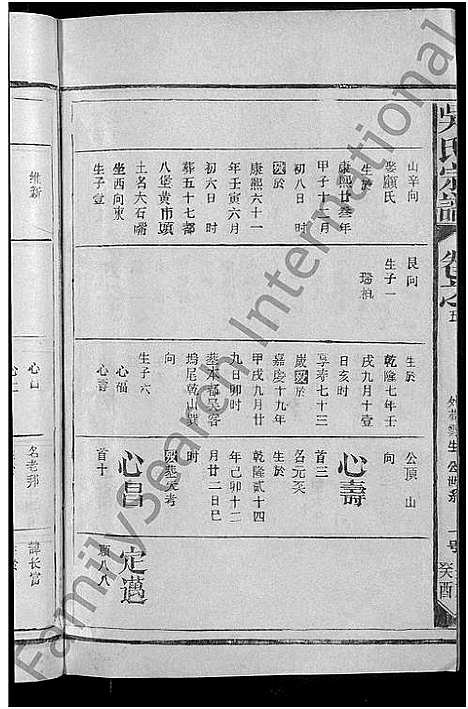 吳氏宗譜
癸酉
山辛向
娶顧氏
生於
康熙廿叁年
甲子十二月
初八日時
歿於
康熙六十一
年壬寅六月
初六日時
葬五十七都
八堡黄市頭
土名大石嘴
坐西向東
生子壹
維新
艮向
生子一
瑞柏
生於
乾隆七年壬
戌九月十壹
日亥時
享寿七十三
歲歿於
嘉慶十九年
甲戌九月廿
九日卯時
葬本都吴家
塢尾乾山巽
向
生子六
心福
心壽
公頂 山
向
心壽
首三
名元癸
生於
乾隆贰十四
年己卯十二
月廿二日巳
時
歿葬失考
心昌
首十
名老邦
定邁
順八八
諱长富
FamilySearch International